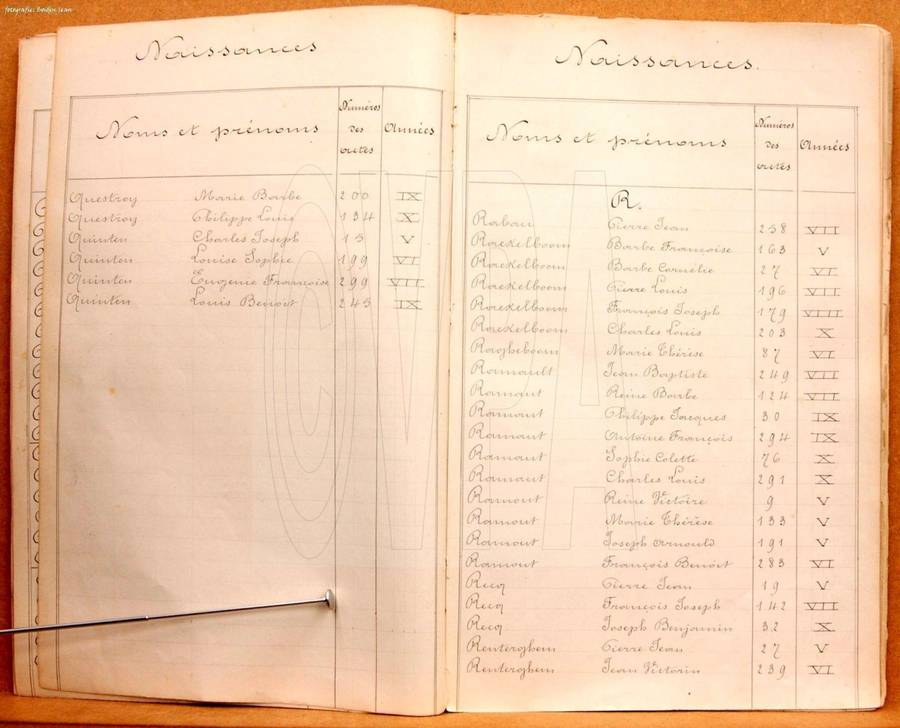 fotografie: Boidin Jean
Naissances
Noms et prénoms Numéros des actes Années
Questroy Marie Barbe 200 IX
Questroy Philippe Louis 134 X
Quinten Charles Joseph 15 V
Quinten Louise Sophie 199 VI
Quinten Eugenie Françoise 299 VIII
Quinten Louis Benoit 245 IX
Naissances.
Noms et prénoms Numéros des actes Années
R.
Rabau Pierre Jean 258 VII
Raekelboom Barbe Françoise 163 V
Raekelboom Barbe Cornélie 27 VI
Raekelboom Pierre Louis 196 VII
Raekelboom François Joseph 179 VIII
Raekelboom Charles Louis 203 X
Ragheboom Marie Thérèse 87 VI
Ramault Jean Baptiste 249 VII
Ramaut Reine Barbe 124 VII
Ramaut Philippe Jacques 30 IX
Ramaut Antoine François 294 IX
Ramaut Sophie Colette 76 X
Ramaut Charles Louis 291 X
Ramout Reine Victoire 9 V
Ramout Marie Thérèse 133 V
Ramout Joseph Arnould 191 V
Ramout François Benoit 283 VI
Recq Pierre Jean 19 V
Recq François Joseph 142 VII
Recq Joseph Benjamin 32 X
Renterghem Pierre Jean 27 V
Renterghem Jean Victorin 239 VI